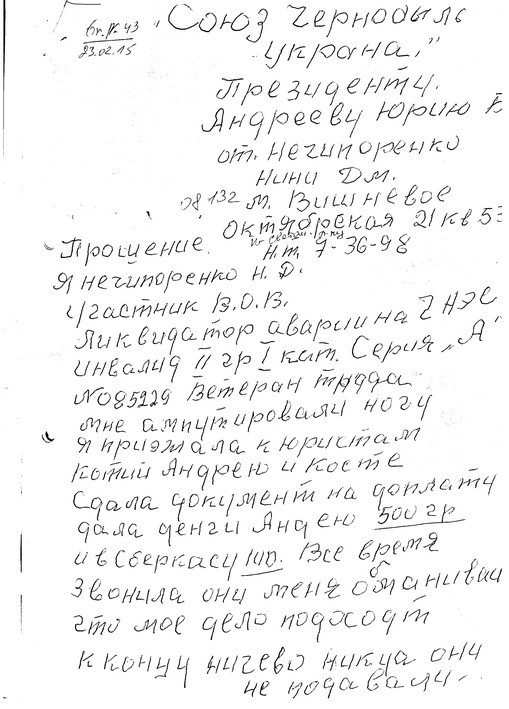 Вх. № 43
23.02.15
"Союз Чернобыль
Украна."
Президенту.
Андрееву Юрию Б
от. Нечипоренко
Нини Дм.
08132 м. Вишневое
Октябрская 21 кв 53
Прошение. Н.т. 7-36-98
Я Нечипоренко Н. Д.
Участник В.О.В.
Ликвидатор аварии на ЧАЭС
инвалид II гр I кат. Серия „А"
№085229 Ветеран труда
мне ампутировали ногу
я приэжала к юристам
Котий Андрею и Косте
Сдала документ на доплату
дала денги Андею 500 гр
и в Сберкасу 140. Все время
Звонила они меня обманиваи
что мое дело подоходт
к концу ничево никуа они
не подавали.